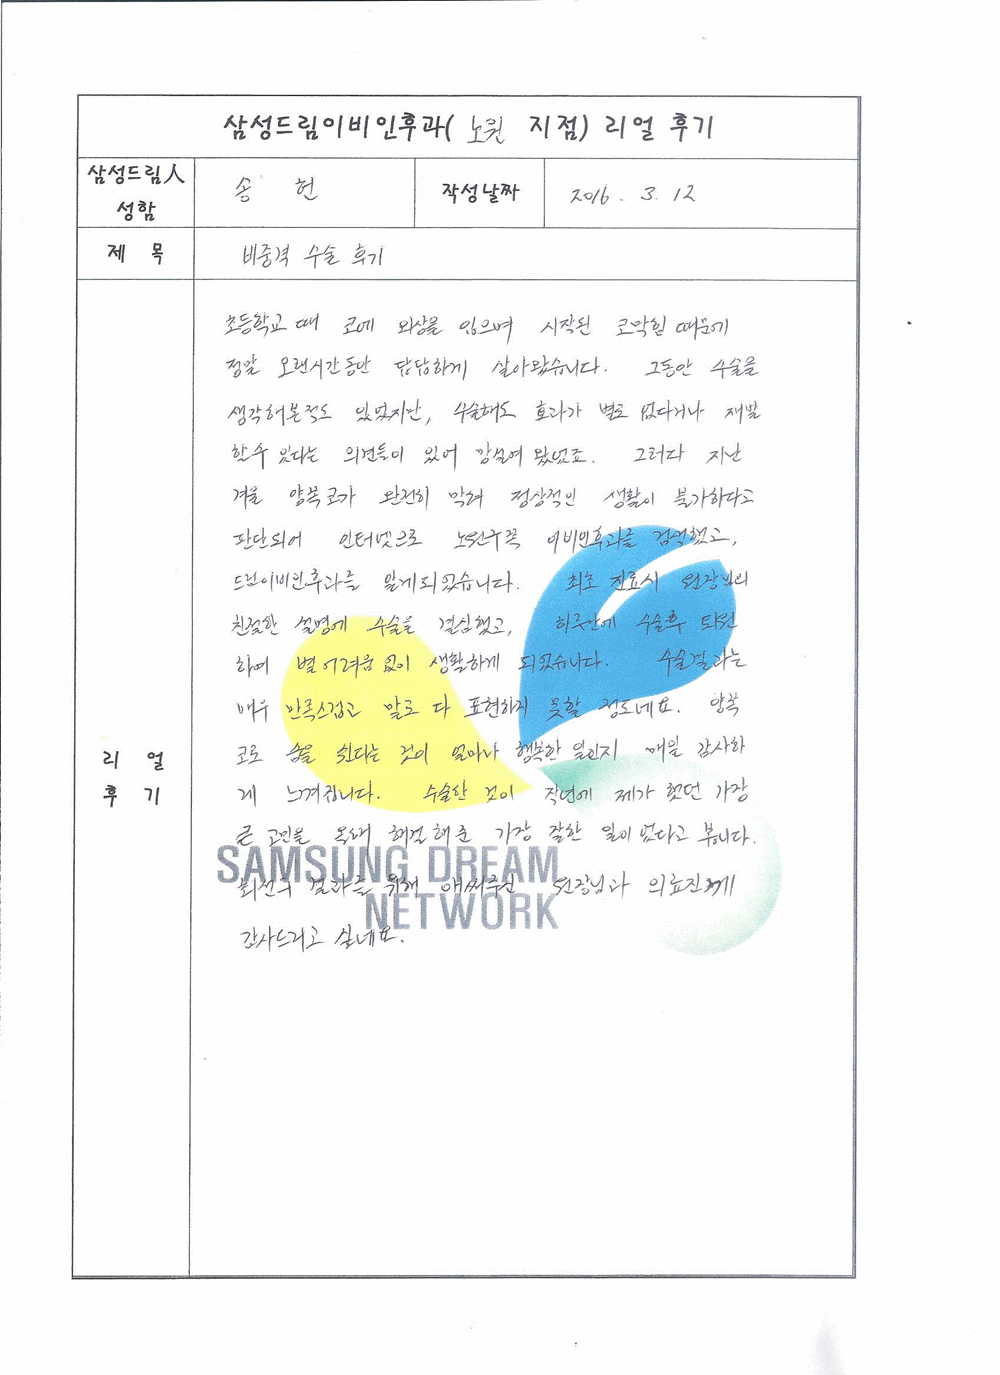 삼성드림이비인후과( 노원 지점) 리얼 후기
삼성드림人 성함
송 헌
작성날짜
2016. 3. 12
제 목
비중격 수술 후기
리 얼 후 기
초등학교 때 코에 외상을 입으며 시작된 코막힘 때문에
정말 오랜시간동안 답답하게 살아왔습니다. 그동안 수술을
생각해본적도 있었지만, 수술해도 효과가 별로 없다거나 재발
할수 있다는 의견들이 있어 망설여 왔었죠. 그러다 지난
겨울 양쪽코가 완전히 막혀 정상적인 생활이 불가하다고
판단되어 인터넷으로 노원구쪽 이비인후과를 검색했고,
드림이비인후과를 알게되었습니다. 최초 진료시 원장님의
친절한 설명에 수술을 결심했고, 하루만에 수술후 퇴원
하여 별 어려움 없이 생활하게 되었습니다. 수술결과는
매우 만족스럽고 말로 다 표현하지 못할 정도네요. 양쪽
코로 숨을 쉰다는 것이 얼마나 행복한 일인지 매일 감사하
게 느껴집니다. 수술한 것이 작년에 제가 했던 가장
큰 고민을 올해 해결해준 가장 잘한 일이었다고 봅니다.
최선의 결과를 위해 애써주신 원장님과 의료진께
감사드리고 싶네요.
SAMSUNG DREAM
NETWORK